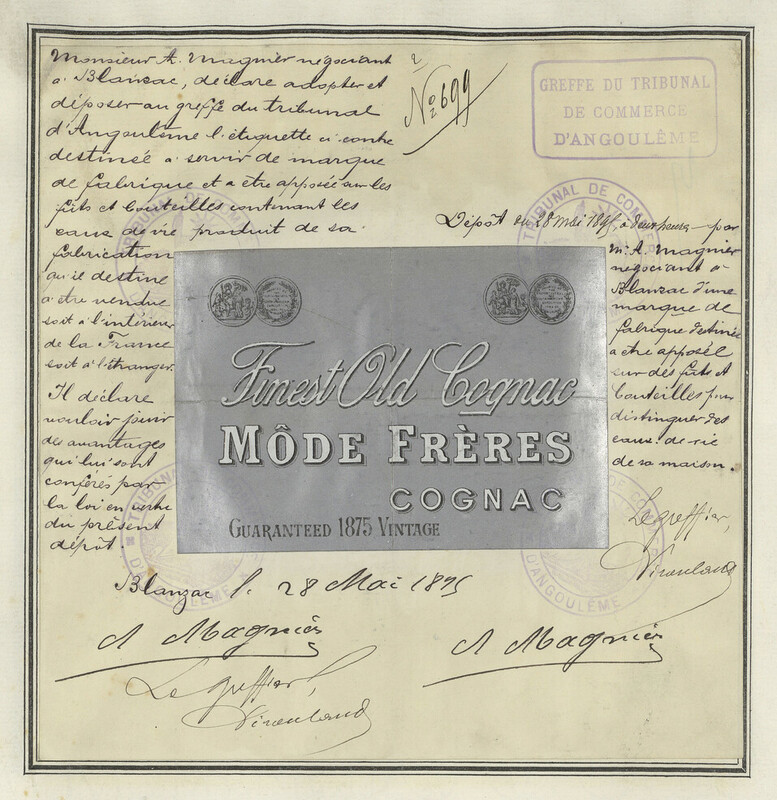 Monsieur A. Magnier négociant
à Blanzac, déclare adopter et
déposer au greffe du tribunal
d'Angoulême l'étiquette ci contre
destinée à servir de marque
de fabrique et à être apposée sur les
fûts et bouteilles contenant les
eaux de vie produit de sa
fabrication
qu'il destine
à être vendue
soit à l'intérieur
de la France
soit à l'étranger.
Il déclare
vouloir jouir
des avantages
qui lui sont
conférés par
la loi en vertu
du présent
dépôt.
No 2699
GREFFE DU TRIBUNAL
DE COMMERCE
D'ANGOULÊME
Dépôt du 28 mai 1895, à deux heures par
M. A. Magnier
négociant à
Blanzac d'une
marque de
fabrique destinée
à être apposée
sur des fûts et
bouteilles pour
distinguer des
eaux-de-vie
de sa maison.
Le greffier,
Finest Old Cognac
MÔDE FRÈRES
COGNAC
GUARANTEED 1875 VINTAGE
Blanzac le 28 Mai 1895
A Magnier
A Magnier
Le greffier,
TRIBUNAL DE COMMERCE
D'ANGOULÊME